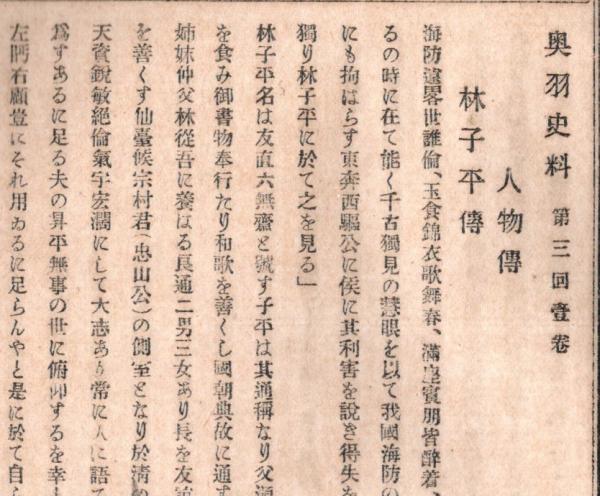 奥羽史料 第三回壹卷
人物傳
林子平傳
海防遠畧世誰倫、玉食錦衣歌舞春、滿座賓朋皆醉着、
るの時に在て能く千古獨見の慧眼を以て我國海防の
にも拘はらす東奔西驅公に侯に其利害を説き得失を
獨り林子平に於て之を見る」
林子平名は友直六無齋と號す子平は其通稱なり父源
を食み御書物奉行たり和歌を善くし國朝典故に通す
姉妹仲父林從吾に養はる良通二男三女あり長を友諒
を善くす仙臺候宗村君（忠山公）の側室となり於淸
天資鋭敏絶倫氣宇宏濶にして大志あり常に人に語て
爲すあるに足る夫の昇平無事の世に俯仰するを幸
左眄右顧豈にそれ用ゐるに足らんやと是に於て自ら